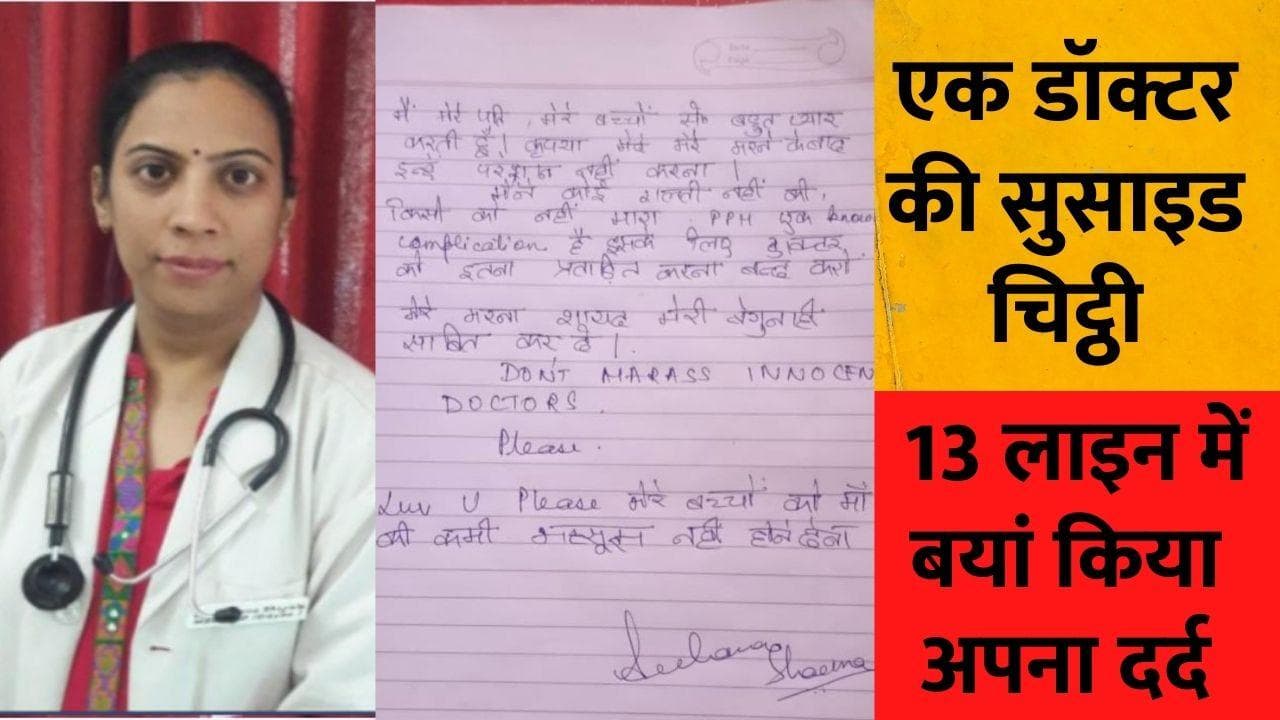 मैं मेरे पति, मेरे बच्चों से बहुत प्यार
करती हूँ। कृपया मेरे मेरे मरने के बाद
इन्हें परेशान नहीं करना।
मैंने कोई गलती नहीं की,
किसी को नहीं मारा. PPH एक known
complication है इसके लिए डॉक्टर
को इतना प्रताड़ित करना बन्द करो
मेरा मरना शायद मेरी बेगुनाही
साबित कर दे।
DON'T HARASS INNOCEN
DOCTORS.
Please.
Luv U Please मेरे बच्चों को माँ
की कमी महसूस नहीं होने देना
Sharma
एक डॉक्टर
की सुसाइड
चिट्ठी
13 लाइन में
बयां किया
अपना दर्द